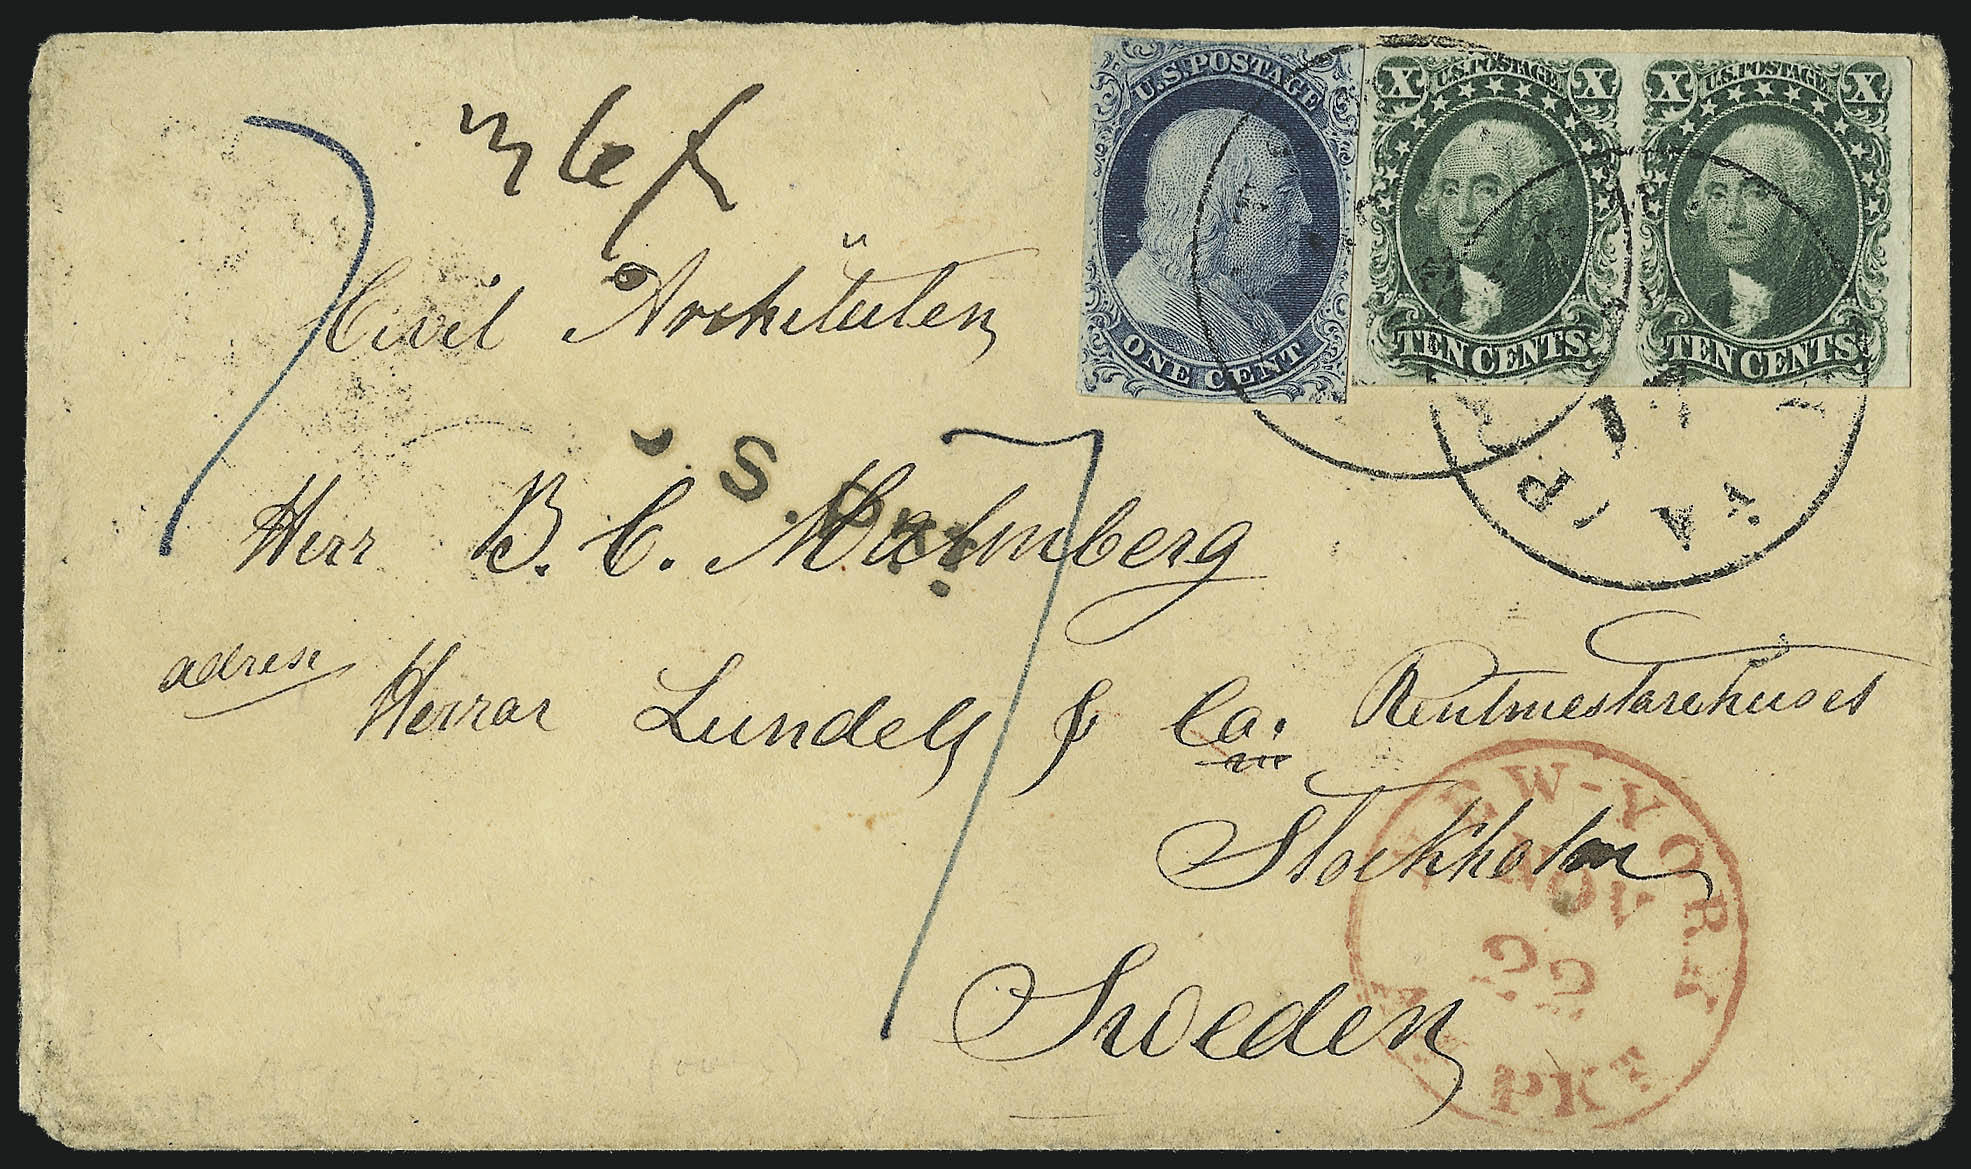 U.S. POSTAGE
ONE CENT
X U.S. POSTAGE X
TEN CENTS
X U.S. POSTAGE X
TEN CENTS
7
Civil Architecten
S. Pkt.
7
Herr B. C. Malmberg
adress
Herrar Lundell & Co. Rentmestarehuset
Stockholm
Sweden
NEW-YORK
NOV
22
PKT